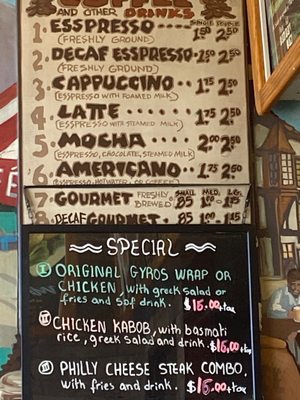 AND OTHER DRINKS
SINGLE DOUBLE
1. ESSPRESSO 1.50 2.50
(FRESHLY GROUND)
2. DECAF ESSPRESSO 1.50 2.50
(FRESHLY GROUND)
3. CAPPUCCINO 1.75 2.50
(ESSPRESSO WITH FOAMED MILK)
4. LATTE 1.75 2.50
(ESSPRESSO WITH STEAMED MILK)
5. MOCHA 2.00 2.50
(ESSPRESSO, CHOCOLATE, STEAMED MILK)
6. AMERICANO 1.75 2.50
(ESSPRESSO, HOT WATER
SMALL MED. LG.
7 GOURMET FRESHLY BREWED .85 1.00 1.45
8 DECAF GOURMET .85 1.00 1.45
SPECIAL
I ORIGINAL GYROS WRAP OR
CHICKEN, with greek salad or
fries and sof drink. $15.00+tax
II CHICKEN KABOB, with basmati
rice, greek salad and drink. $16.00+tax
III PHILLY CHEESE STEAK COMBO,
with fries and drink. $15.00+tax